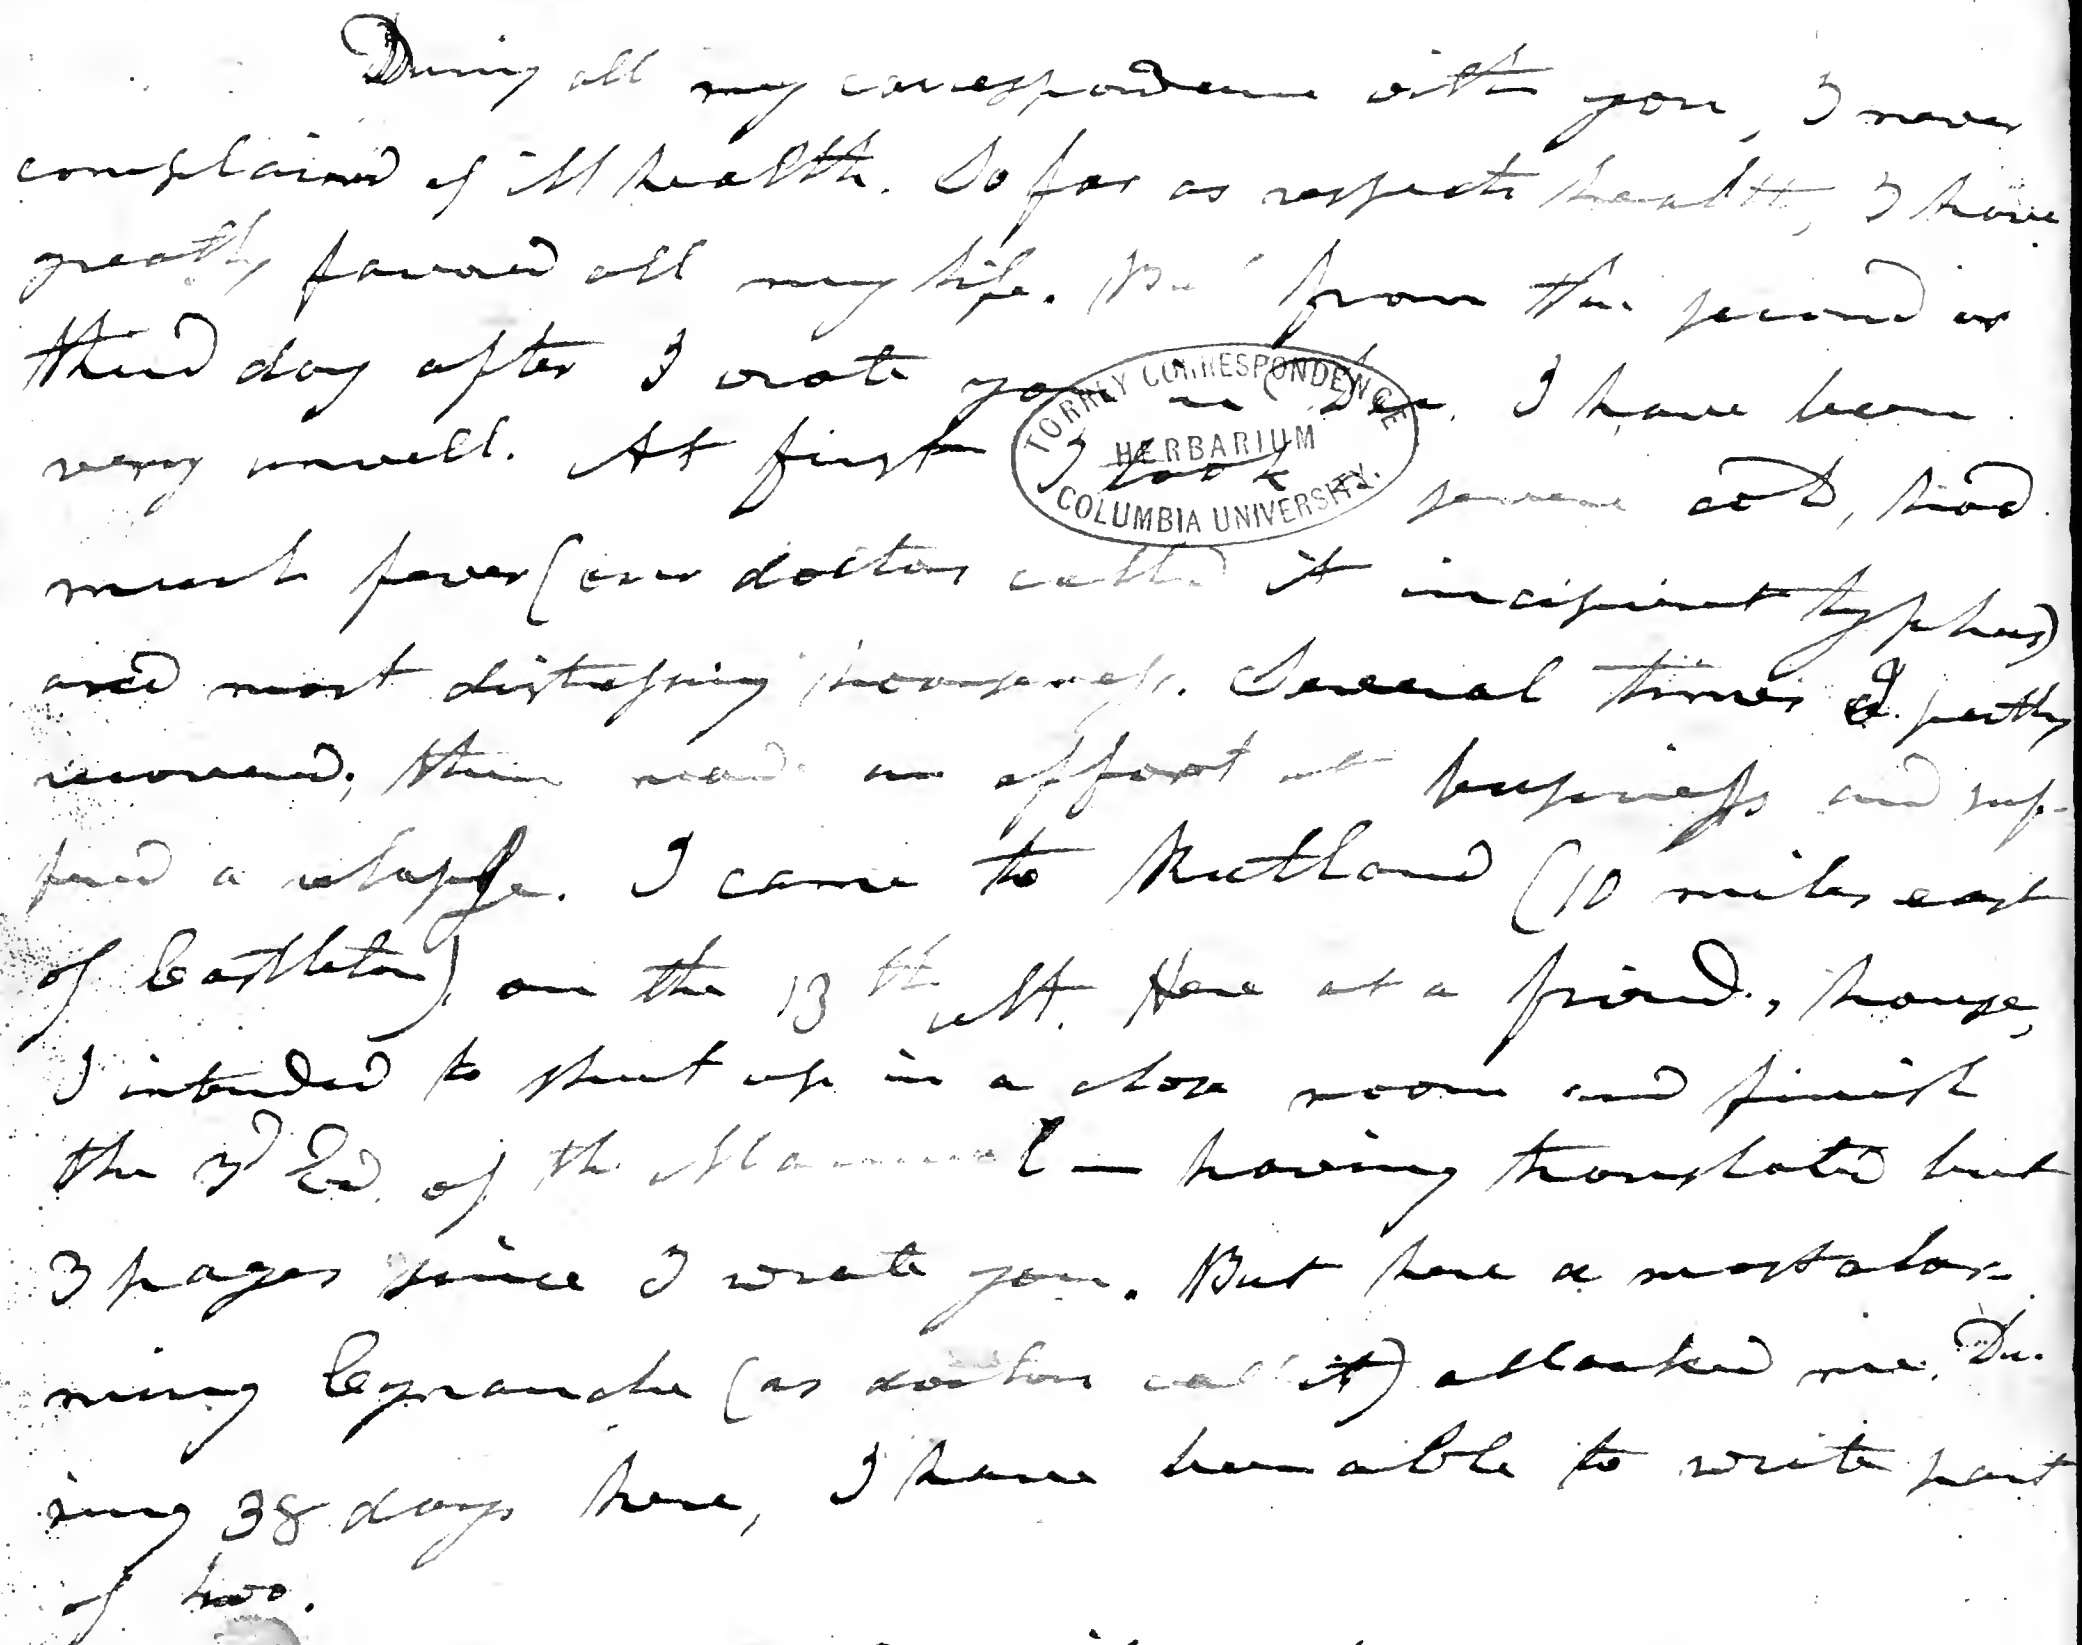 During all my correspondence with you, I never
complained of ill health. So far as respects health, I have
greatly favored all my life. But from the second or
third day after I wrote you in Dec. I have been
very unwell. At first I took severe cold, had
much fever (our doctors called it incipient typhus)
and most distressing hoarseness. Several times I partly
recovered; then made an effort at business and suf-
fered a relapse. I came to Rutland (10 miles east
of Castleton) on the 13th ult. Here at a friend's house,
I intended to shut up in a close room and finish
the 3d Ed. of the Manual — having translated but
3 pages since I wrote you. But here a most alar-
ming (as doctors call it) attacked me. Du-
ring 38 days here, I have been able to write part
of two.
TORREY CORRESPONDENCE
HERBARIUM
COLUMBIA UNIVERSITY.